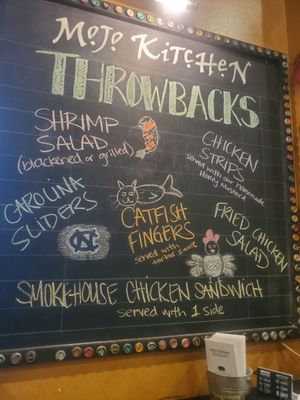 MOJO KITCHEN
THROWBACKS
SHRIMP
SALAD
(blackened or grilled)
CHICKEN
STRIPS
served with our homemade
Honey Mustard
CAROLINA
SLIDERS
NC
CATFISH
FINGERS
served with
tartar sauce
FRIED CHICKEN
SALAD
SMOKEHOUSE CHICKEN SANDWICH
served with 1 side